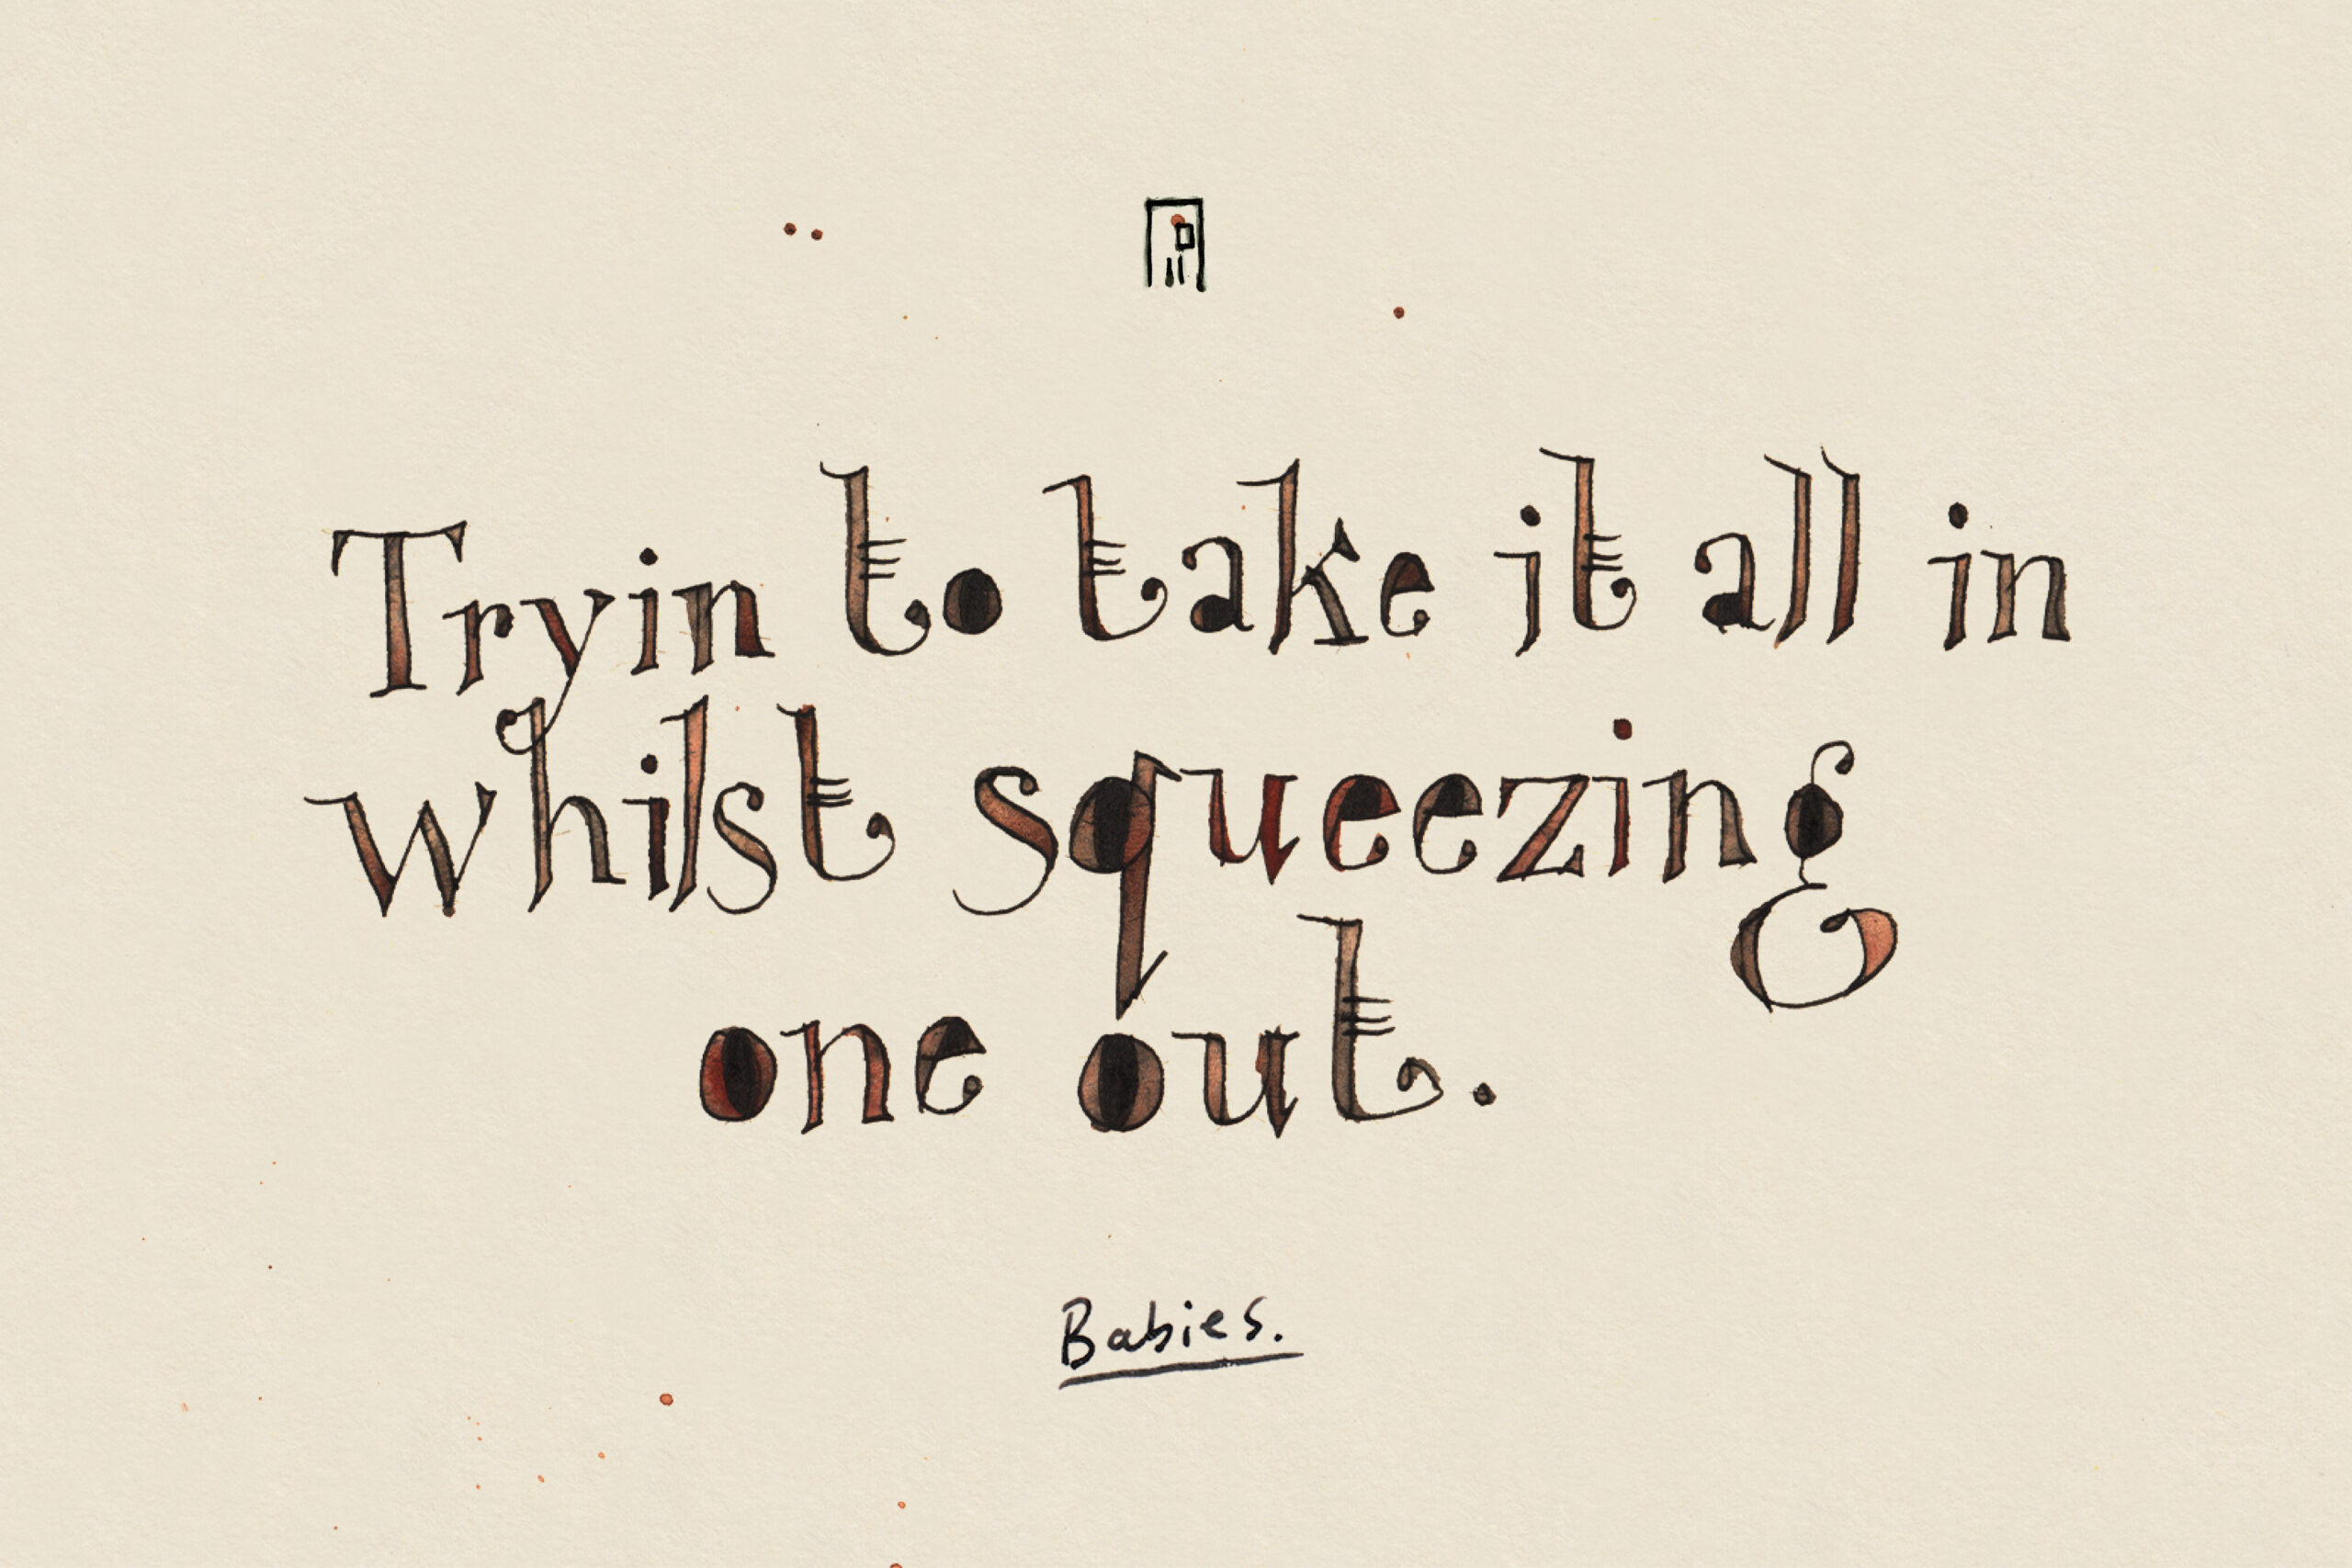 Tryin to take it all in
whilst squeezing
one out.
Babies.